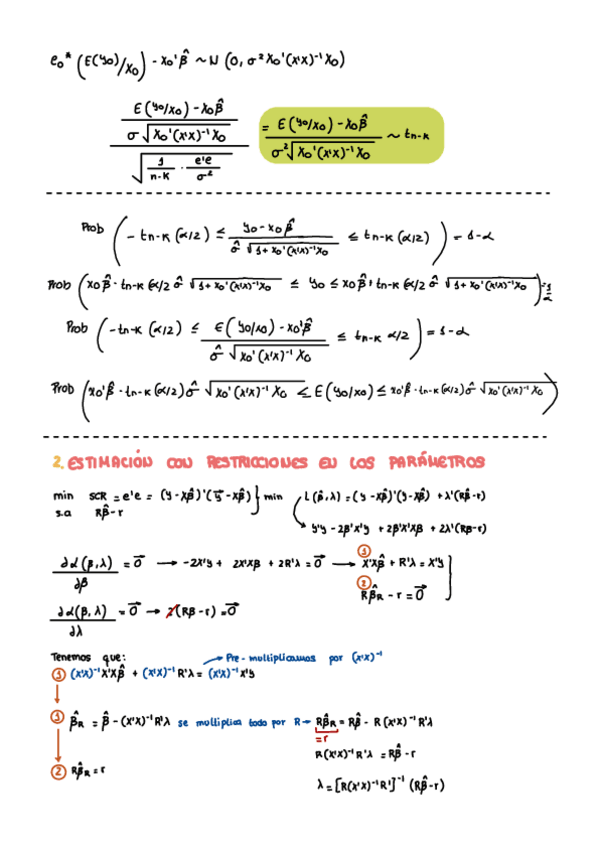 e₀* (E(y₀)/x₀) - x₀'β̂ ~ N (0, σ² x₀'(x'x)⁻¹ x₀)
E(y₀/x₀) - x₀β̂ / σ √x₀'(x'x)⁻¹x₀ / √(1/n-k · e'e/σ²) = E(y₀/x₀) - x₀β̂ / σ² √x₀'(x'x)⁻¹x₀ ~ tn-k
Prob (- tn-k (α/2) ≤ y₀ - x₀β̂ / σ̂ √1 + x₀'(x'x)⁻¹x₀ ≤ tn-k (α/2)) = 1-α
Prob (x₀β̂ - tn-k (α/2 σ̂ √1 + x₀'(x'x)⁻¹x₀ ≤ y₀ ≤ x₀β̂ + tn-k (α/2 σ̂ √1 + x₀'(x'x)⁻¹x₀) = 1-α
Prob (-tn-k (α/2) ≤ E(y₀/x₀) - x₀'β̂ / σ̂ √x₀'(x'x)⁻¹ x₀ ≤ tn-k α/2) = 1-α
Prob (x₀'β̂ - tn-k (α/2) σ̂ √x₀'(x'x)⁻¹ x₀ ≤ E(y₀/x₀) ≤ x₀'β̂ - tn-k (α/2) σ̂ √x₀'(x'x)⁻¹ x₀)
2. ESTIMACIÓN CON RESTRICCIONES EN LOS PARÁMETROS
min SCR = e'e = (y - xβ̂)'(y - xβ̂) } min L(β, λ) = (y - xβ̂)'(y - xβ̂) + λ'(Rβ̂-r)
s.a Rβ̂ - r
y'y - 2β'x'y + 2β'x'xβ + 2λ'(Rβ-r)
∂L(β, λ) / ∂β = 0⃗ → -2x'y + 2x'xβ + 2R'λ = 0⃗ → ① x'xβ̂ + R'λ = x'y
② Rβ̂R - r = 0⃗
∂L(β, λ) / ∂λ = 0⃗ → 2(Rβ - r) = 0⃗
Tenemos que: → Pre-multiplicamos por (x'x)⁻¹
① (x'x)⁻¹x'xβ̂ + (x'x)⁻¹R'λ = (x'x)⁻¹x'y
① β̂R = β̂ - (x'x)⁻¹R'λ se multiplica todo por R → Rβ̂R = Rβ̂ - R(x'x)⁻¹R'λ
= r
R(x'x)⁻¹R'λ = Rβ̂ - r
② Rβ̂R = r
λ = [R(x'x)⁻¹R']⁻¹ (Rβ̂-r)